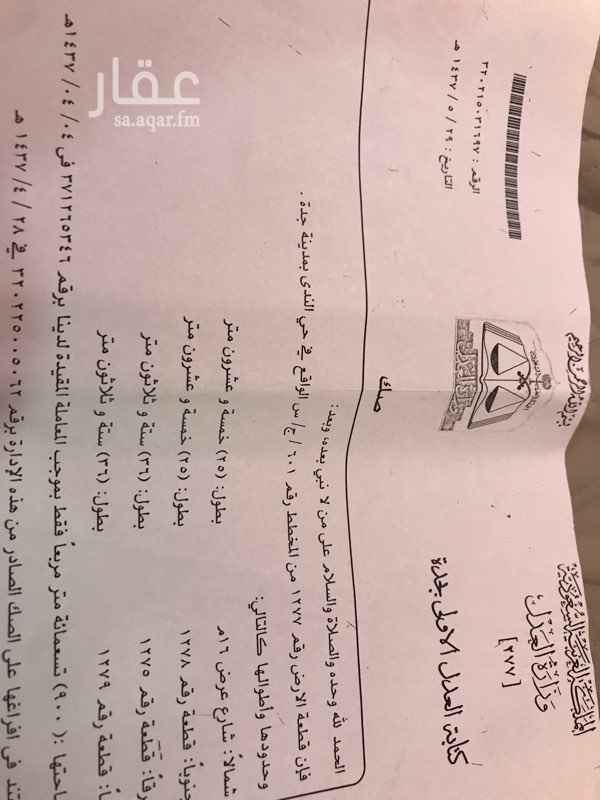 بسم الله الرحمن الرحيم
المملكة العربية السعودية
وزارة العدل
[٢٧٧]
كتابة العدل الاولى بجدة
الرقم : ٣٢٠٢١٥٠٣١٦٩٧
التاريخ : ٢٩ / ٥ / ١٤٣٧ هـ
صك
الحمد لله وحده والصلاة والسلام على من لا نبي بعده، وبعد:
فإن قطعة الارض رقم ١٢٧٧ من المخطط رقم ٦٠١ / ج/ س الواقع في حي الندى بمدينة جدة .
وحدودها وأطوالها كالتالي:
شمالاً: شارع عرض ١٦م بطول: (٢٥) خمسة و عشرون متر
جنوباً: قطعة رقم ١٢٧٨ بطول: (٢٥) خمسة و عشرون متر
رقاً: قطعة رقم ١٢٧٥ بطول: (٣٦) ستة و ثلاثون متر
اً: قطعة رقم ١٢٧٩ بطول: (٣٦) ستة و ثلاثون متر
احتها: (٩٠٠) تسعمائة متر مربعاً فقط بموجب المعاملة المقيدة لدينا برقم ٣٧١٢٦٥٣٤٦ في ٠٤ / ٠٤ / ١٤٣٧هـ
تند في افراغها على الصك الصادر من هذه الإدارة برقم ٣٢٠٢٢٥٠٠٥٠٦٢ في ٢٨ / ٤ / ١٤٣٧ هـ
عقار
sa.aqar.fm